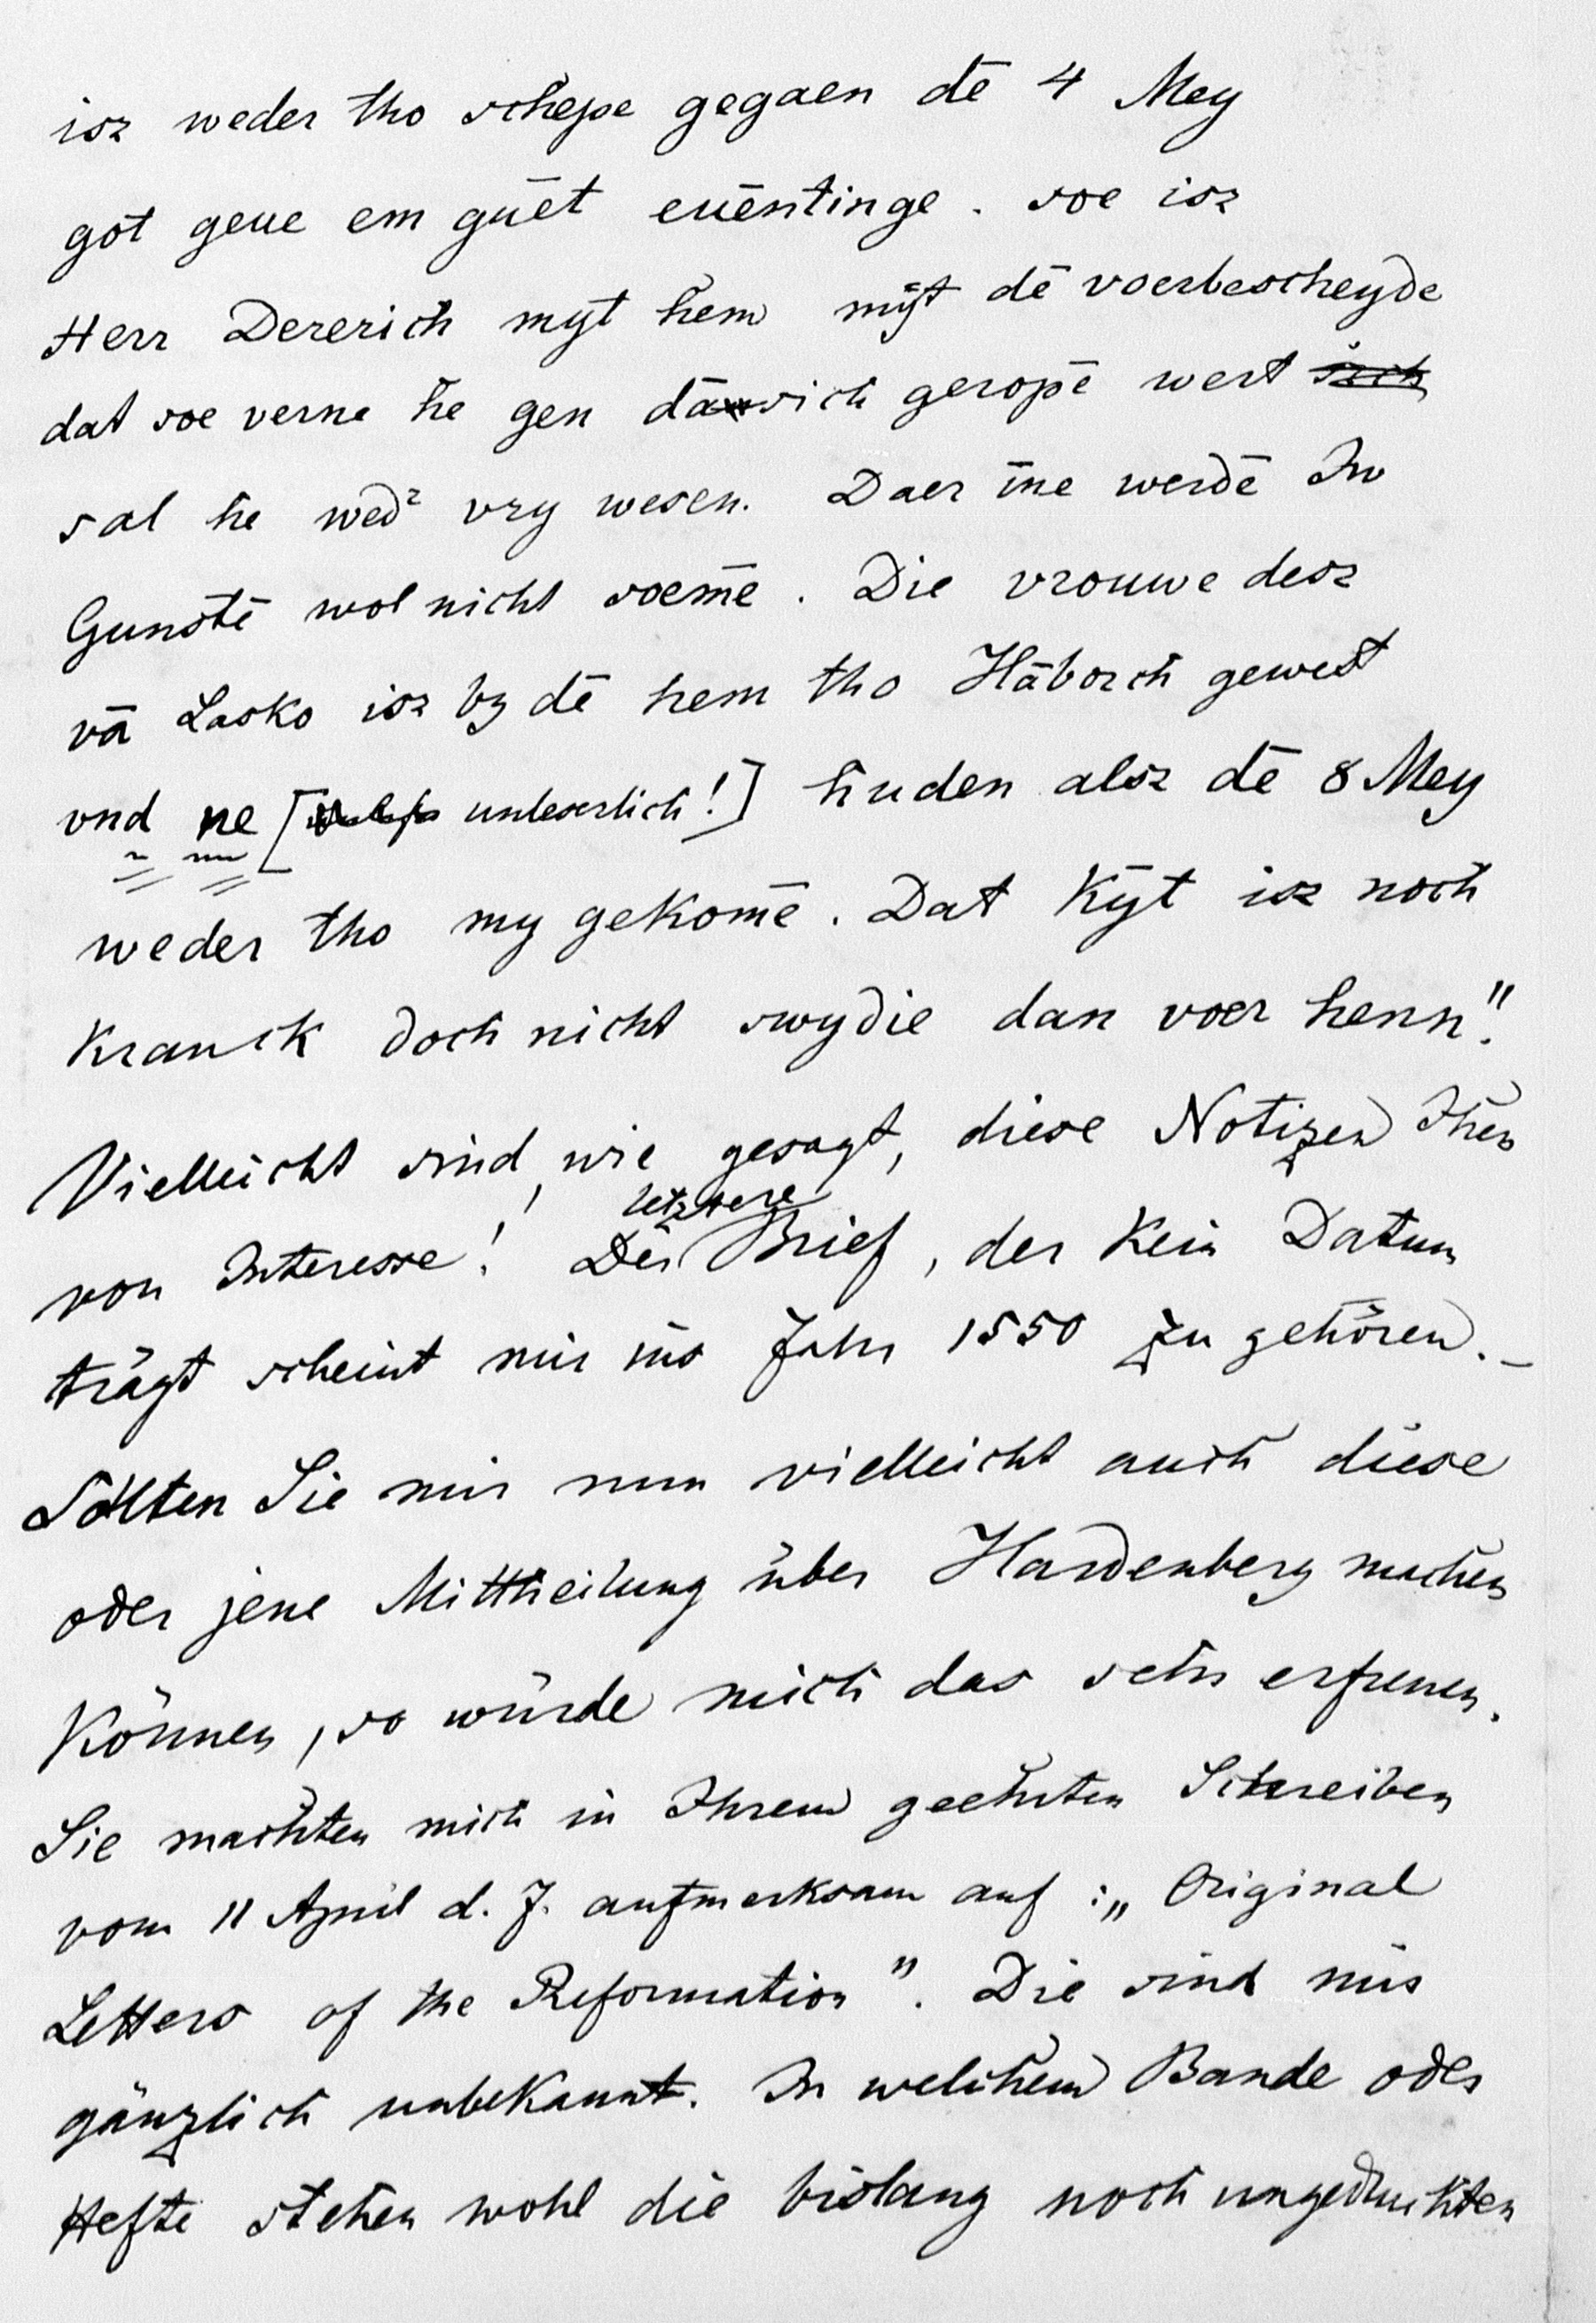 isz weder tho schepe gegaen dē 4 Mey
got geue em guēt euēntinge. soe isz
Herr Dererich myt hem mÿt dē voerbescheyde
dat soe verne he gen dā sich geropē wert
sal he wed² vry wesen. Daer īne werdē Jw
Gunstē wol nicht soemē. Die vrouwe desz
vā Lasko isz by dē hem tho Hāborch gewest
vnd ne [unleserlich!] huden alsz dē 8 Mey
weder tho my gekomē. Dat Kÿt isz noch
Kranck doch nicht swydie dan voer henn".
Vielleicht sind, wie gesagt, diese Notizen Ihnen
von Interesse! Der letztere Brief, der Kein Datum
trägt scheint mir ins Jahr 1550 zu gehören. –
Sollten Sie mir nun vielleicht auch diese
oder jene Mittheilung über Hardenberg machen
Können, so würde mich das sehr erfreuen.
Sie machten mich in Ihrem geehrten Schreiben
vom 11 April d. J. aufmerksam auf: „Original
Letters of the Reformation". Die sind mir
gänzlich unbekannt. In welchem Bande oder
Hefte stehen wohl die bislang noch ungedruckten